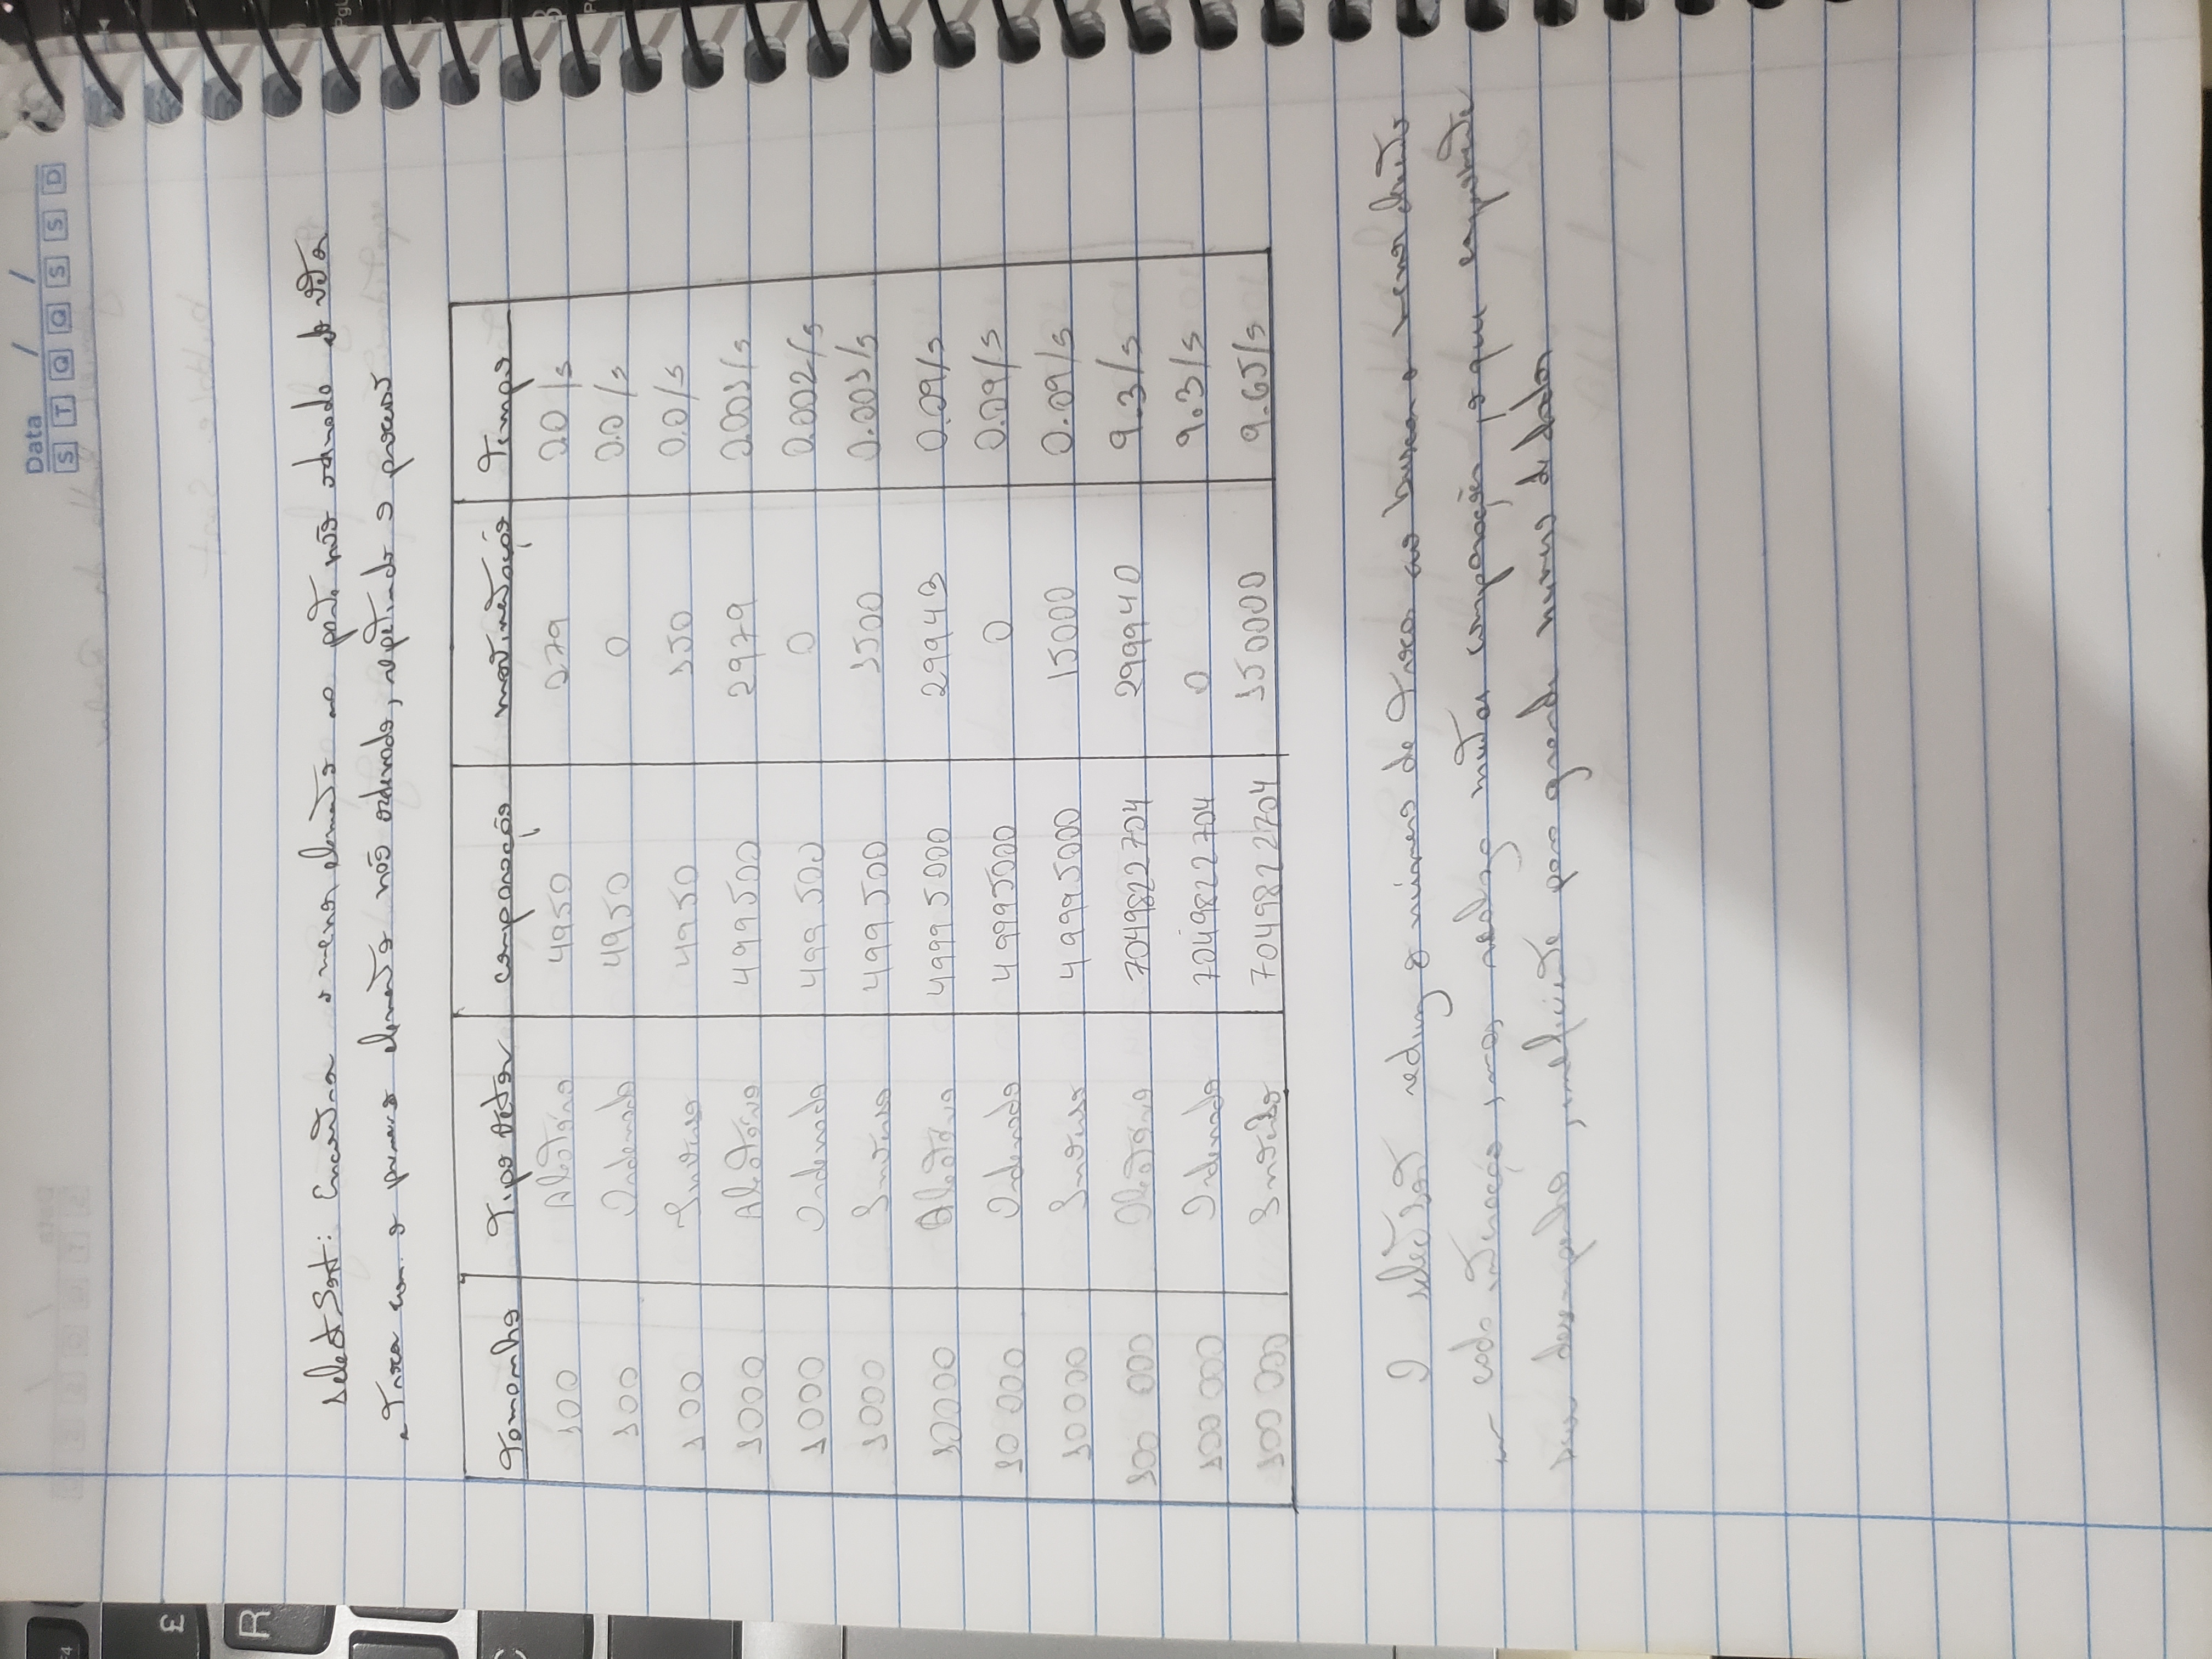 Data / /
S T Q Q S S D
SelectSort: Encontra o menor elemento na parte não ordenada do vetor
e troca com o primeiro elemento não ordenado, repetindo o processo
Tamanho Tipo Vetor comparação movimentação Tempo
100 Aleatório 4950 279 0.0/s
100 Ordenado 4950 0 0.0/s
100 Inverso 4950 150 0.0/s
1000 Aleatório 499500 2979 0.001/s
1000 Ordenado 499500 0 0.002/s
1000 Inverso 499500 1500 0.001/s
10000 Aleatório 49995000 29943 0.09/s
10 000 Ordenado 49995000 0 0.09/s
10000 Inverso 49995000 15000 0.09/s
100 000 Aleatório 7049822704 299940 9.3/s
100 000 Ordenado 7049822704 0 9.3/s
100 000 Inverso 7049822704 150000 9.65/s
O selectSort reduz o número de troca ao buscar o menor elemento
em cada interação, mas realiza muitas comparações, o que
seu desempenho, ineficiente para grande número de dados
F4
£
R